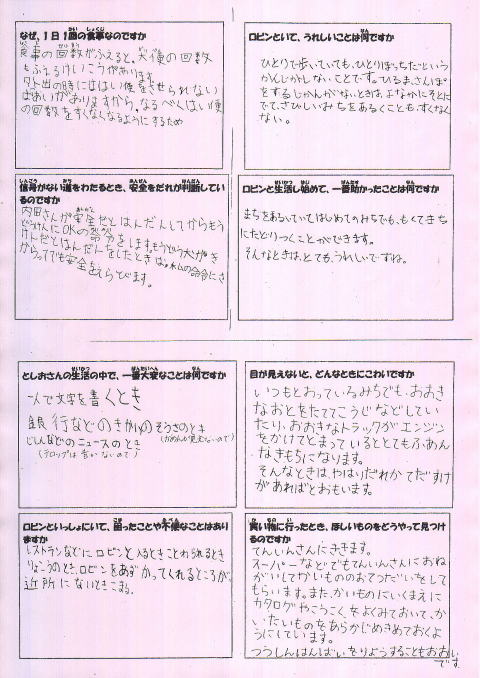 なぜ、1日1回の食事なのですか
食事の回数がふえると、大便の回数
もふえるけいこうがあります。
外出の時には、はい便をさせられない
ばあいがありますから、なるべくはい便
の回数をすくなくなるようにするため
ロビンといて、うれしいことは何ですか
ひとりで歩いていても、ひとりぼっちだという
かんじがしないことです。ひるま、さんぽ
をするじかんがないときは、よなかにそとに
でて、さびしいみちをあるくことも、すくなく
ない。
信号がない道をわたるとき、安全をだれが判断してい
るのですか
内田さんが安全だとはんだんしてからもう
どうけんにOKの命令をします。もうどう犬がき
けんだとはんだんをしたときは、私の命令にさ
からってでも安全をえらびます。
ロビンと生活し始めて、一番助かったことは何ですか
まちをあるいていてはじめてのみちでも、もくてきち
にたどりつくことができます。
そんなときは、とても、うれしいですね。
としおさんの生活の中で、一番大変なことは何ですか
一人で文字を書くとき
銀行などのきかいのそうさのとき
(がめんが見えないので)
じしんなどのニュースのとき
(テロップは音がないので)
目が見えないと、どんなときにこわいですか
いつもとおっているみちでも、おおき
なおとをたててこうじなどしてい
たり、おおきなトラックがエンジン
をかけてとまっているととてもふあん
なきもちになります。
そんなときは、やはりだれかてだすけ
があればとおもいます。
ロビンといっしょにいて、困ったことや不便なことはあり
ますか
レストランなどにロビンと入るときことわられるとき
りょこうのとき、ロビンをあずかってくれるところが
近所にないときこまる。
買い物に行ったとき、ほしいものをどうやって見つけ
るのですか
てんいんさんにききます。
スーパーなどでもてんいんさんにおね
がいしてかいもののおてつだいをして
もらいます。また、かいものにいくまえに
カタログやこうこくをよくみておいて、か
いたいものをあらかじめきめておくよ
うにしています。
つうしんはんばいをりようすることもおおい
です